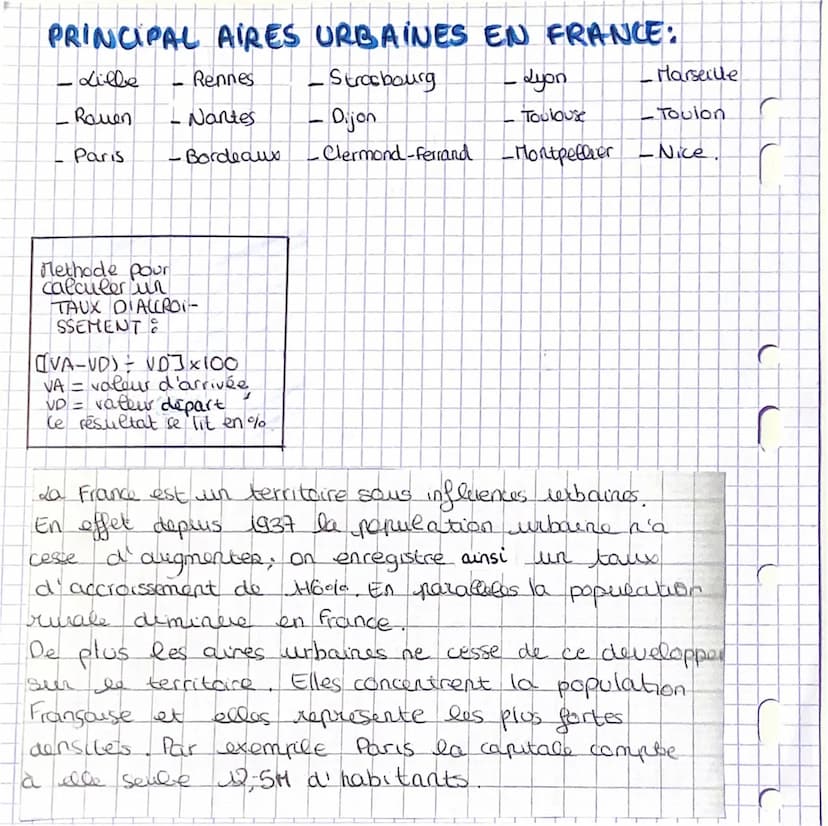 PRINCIPAL AIRES URBAINES EN FRANCE:
- Lille - Rennes - Strasbourg - Lyon - Marseille
- Rouen - Nantes - Dijon - Toulouse - Toulon
- Paris - Bordeaux - Clermond-Ferrand - Montpellier - Nice.
Methode pour
calculer un
TAUX D'ACCROI-
SSEMENT :
[(VA-VD) ÷ VD] x 100
VA = valeur d'arrivée,
VD = valeur départ,
le résultat se lit en %
La France est un territoire sous influences urbaines.
En effet depuis 1937 la population urbaine n'a
cesse d'augmenter; on enregistre ainsi un taux
d'accroissement de 116%. En parallèles la population
rurale diminue en France.
De plus les aires urbaines ne cesse de ce developper
sur le territoire. Elles concentrent la population
Française et elles représente les plus fortes
densités. Par exemple Paris la capitale compte
à elle seule 12,5M d'habitants.